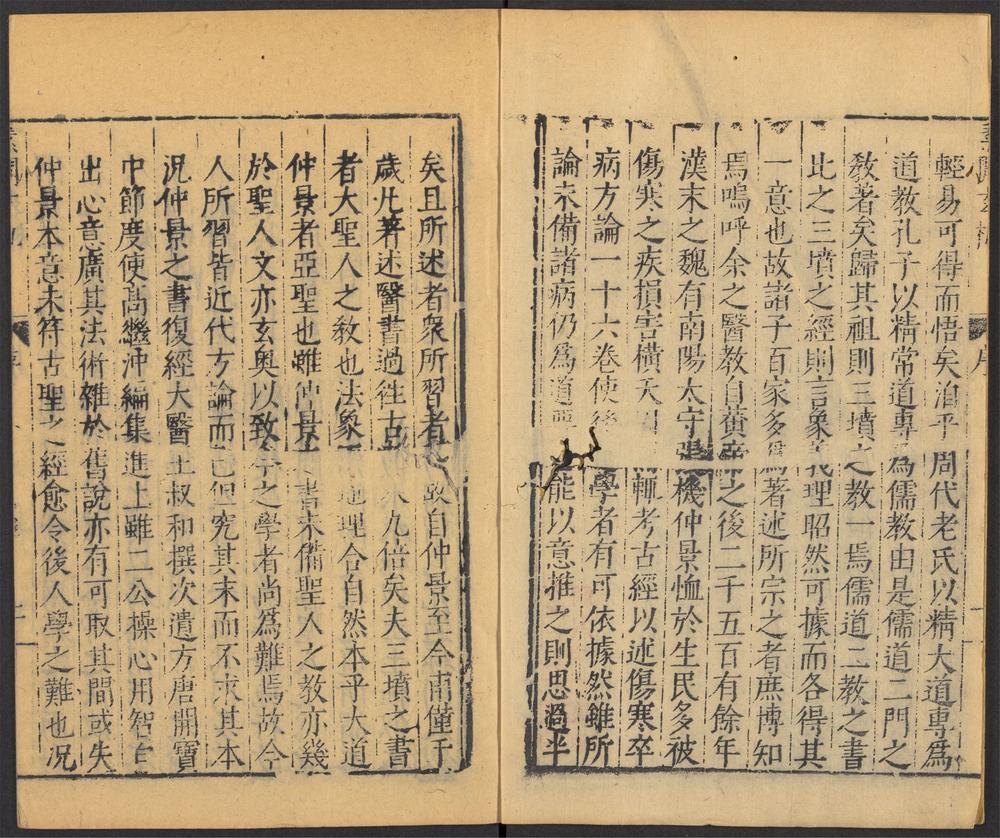 輕易可得而悟矣洎乎周代老氏以精大道專爲
道教孔子以精常道專爲儒教由是儒道二門之
敎著矣歸其祖則三墳之教一焉儒道二教之書
比之三墳之經則言象義理昭然可據而各得其
一意也故諸子百家多爲著述所宗之者庶博知
焉嗚呼余之醫教自黃帝之後二千五百有餘年
漢末之魏有南陽太守張機仲景恤於生民多被
傷寒之疾損害橫夭因而輒考古經以述傷寒卒
病方論一十六卷使後學者有可依據然雖所
論未備諸病仍爲道要能以意推之則思過半
矣且所述者衆所習者故自仲景至今甫僅千
歲凡著述醫書過往古九倍矣夫三墳之書
者大聖人之敎也法象理合自然本乎大道
仲景者亞聖也雖仲景書未備聖人之教亦幾
於聖人文亦玄奥以致今之學者尚爲難焉故今
人所習皆近代方論而已但究其末而不求其本
况仲景之書復經大醫王叔和撰次遺方唐開寶
中節度使高繼沖編集進上雖二公操心用智自
出心意廣其法術雜於舊說亦有可取其間或失
仲景本意未符古聖之經愈令後人學之難也况
序